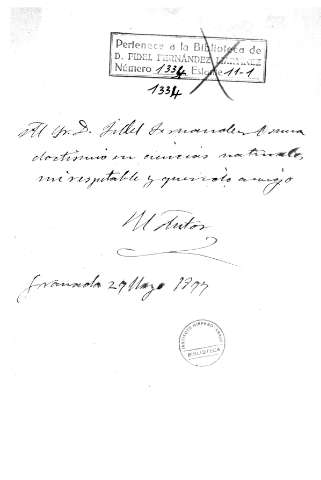 Pertenece a la Biblioteca de
D. FIDEL FERNÁNDEZ MARTÍNEZ
Número 1334 Estante 11-1
1334
Al Sr. D. Fidel Fernandez Osuna
doctísimo en ciencias naturales,
mi respetable y querido amigo
El Autor
Granada 29 Mayo 1897
BIBLIOTECA